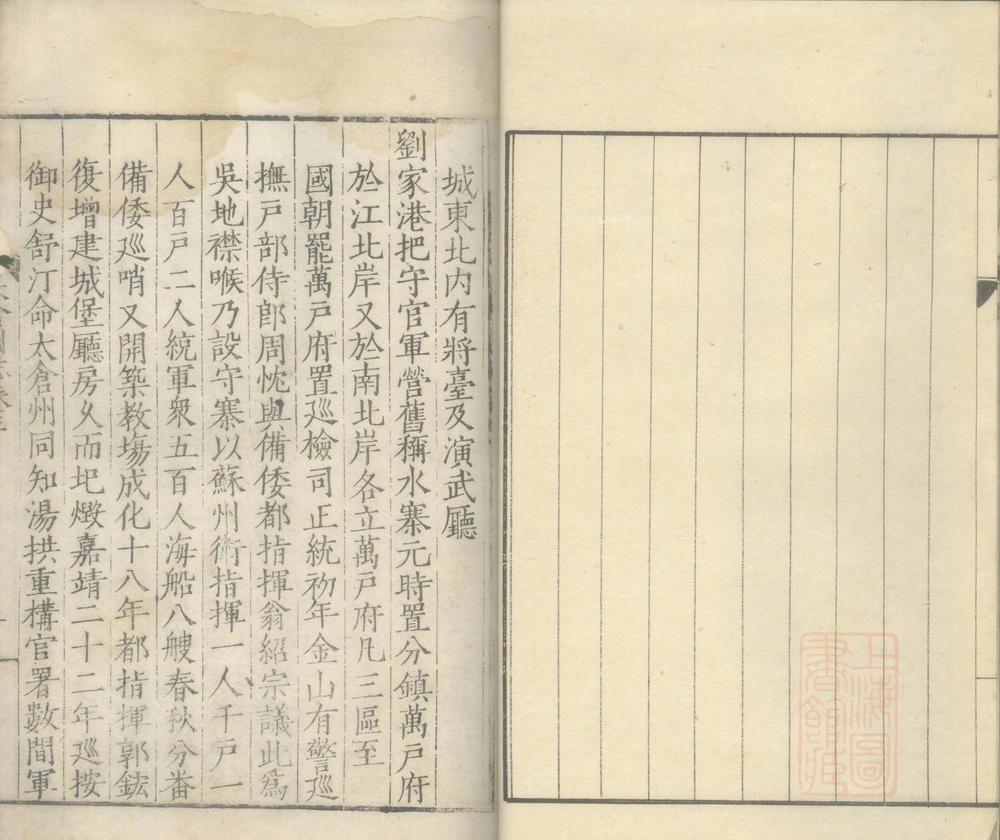 城東北內有將臺及演武廳
劉家港把守官軍營舊稱水寨元時置分鎮萬戶府
於江北岸又於南北岸各立萬戶府凡三區至
國朝罷萬戶府置巡檢司正統初年金山有警巡
撫戶部侍郎周忱與備倭都指揮翁紹宗議此爲
吳地襟喉乃設守寨以蘇州衛指揮一人千戶一
人百戶二人統軍衆五百人海船八艘春秋分番
備倭巡哨又開築教塲成化十八年都指揮郭鋐
復增建城堡廳房久而圯燬嘉靖二十二年巡按
御史舒汀命太倉州同知湯拱重構官署數間軍
上海圖書館藏